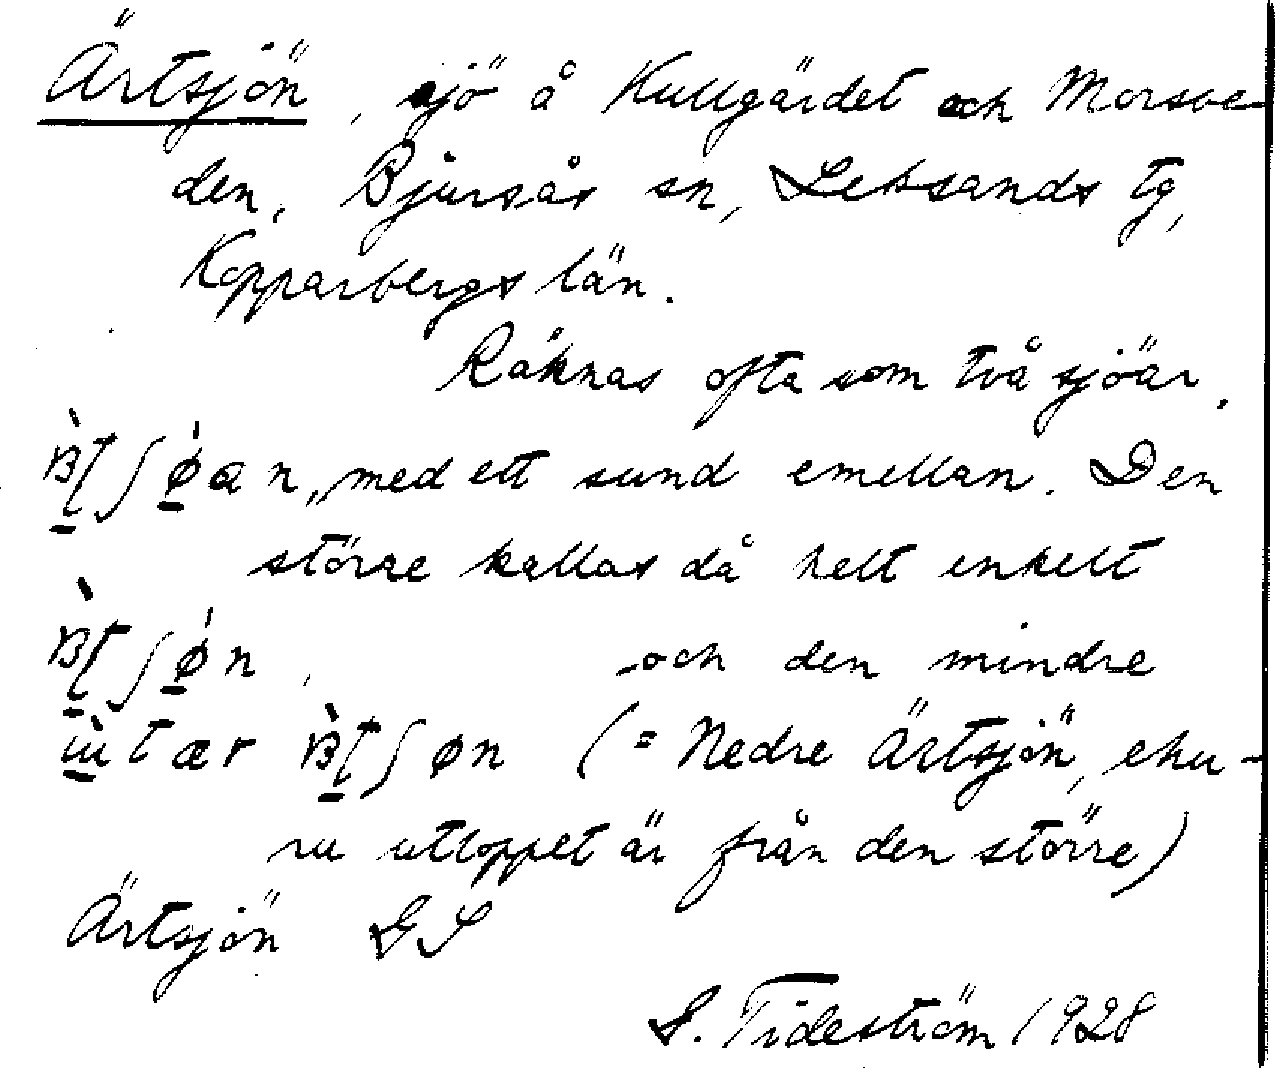 Ärtsjön, sjö å Kullgärdet och Morsve-
den, Bjursås sn, Leksands tg,
Kopparbergs län.
Räknas ofta som två sjöar,
med ett sund emellan. Den
större kallas då helt enkelt
och den mindre
(= Nedre Ärtsjön, ehu-
ru utloppet är från den större)
Ärtsjön GS
S. Tideström 1928